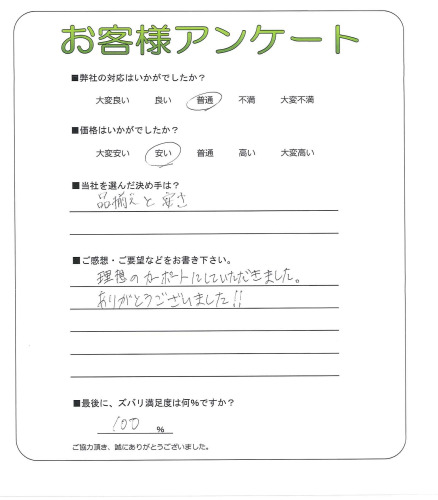 お客様アンケート
■弊社の対応はいかがでしたか？
大変良い 良い 普通 不満 大変不満
■価格はいかがでしたか？
大変安い 安い 普通 高い 大変高い
■当社を選んだ決め手は？
品揃えと安さ
■ご感想・ご要望などをお書き下さい。
理想のカーポートにしていただきました。
ありがとうございました!!
■最後に、ズバリ満足度は何％ですか？
100 %
ご協力頂き、誠にありがとうございました。